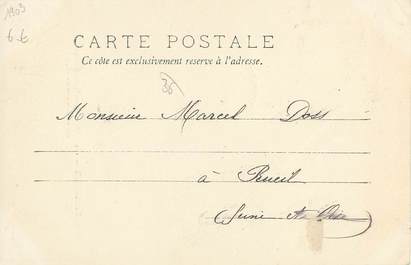 1903
6-6
CARTE POSTALE
Ce côté est exclusivement réservé à l'adresse.
36
Monsieur Marcel Doss
à Rueil
(Seine et Oise)